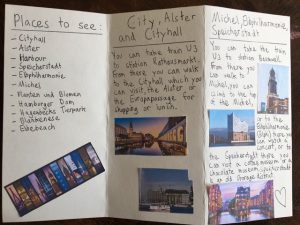 Places to see:
- Cityhall
- Alster
- Harbour
- Speicherstadt
- Elbphilharmonie
- Michel
- Planten und Blomen
- Hamburger Dom
- Hagenbecks Tierpark
- Blankenese
- Elbebeach
City, Alster
and Cityhall
You can take train U3
to station Rathausmarkt.
From there you can walk
to the Cityhall which you
can visit, the Alster or
the Europapassage for
shopping or lunch.
Michel, Elbphilharmonie,
Speicherstadt
You can take the train
U3 to station Baumwall.
From there you
can walk to
Michel, you can
climb to the top
of the Michel,
or to the
Elbphilharmonie
(Elphi) there you
can watch a
concert, or to
the Speicherstadt there you
can visit a museum or a
chocolate museum. Speicherstadt
is an old storage district.